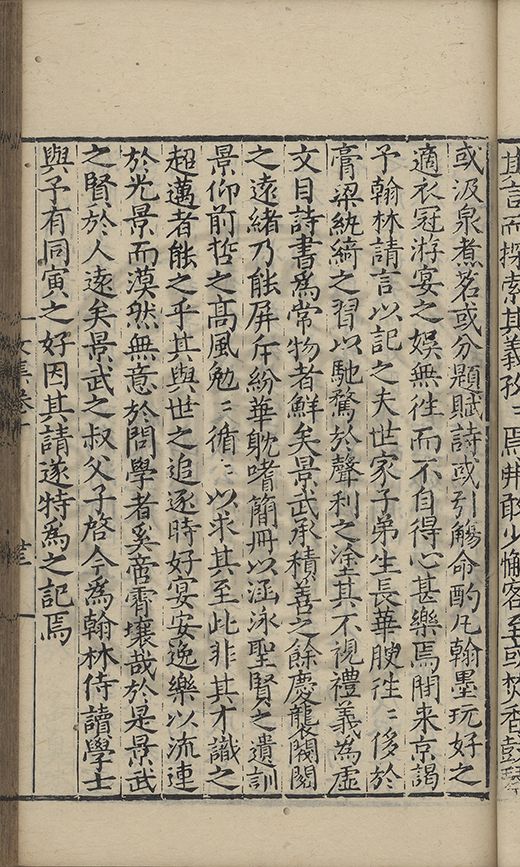 其言而探索其義孜〻焉毋敢少懈客至或焚香鼓琴
或汲泉煮茗或分題賦詩或引觴命酌凡翰墨玩好之
適衣冠游宴之娛無徃而不自得心甚樂焉間来京謁
予翰林請言以記之夫世家子弟生長華腴徃〻侈於
膏梁紈綺之習以馳騖於聲利之塗其不視禮義為虛
文目詩書為常物者鮮矣景武承積善之餘慶襲閥閱
之遠緒乃能屏斥紛華耽嗜簡冊以涵泳聖賢之遺訓
景仰前哲之高風勉〻循〻以求其至此非其才識之
超邁者能之乎其與世之追逐時好宴安逸樂以流連
於光景而漠然無意於問學者奚啻霄壤哉於是景武
之賢於人遠矣景武之叔父子啓今為翰林侍讀學士
與予有同寅之好因其請遂特為之記焉
文集卷十